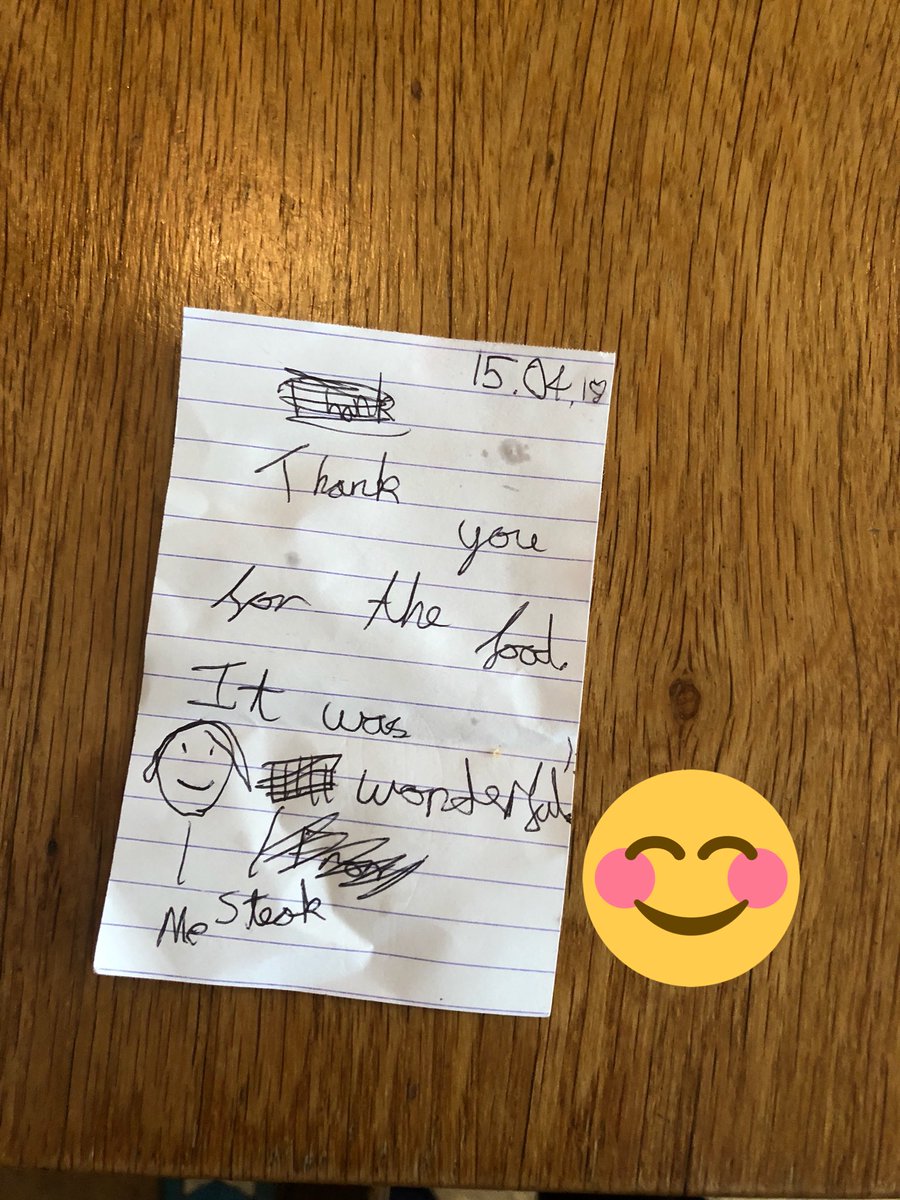 15.04.18
Thank
Thank
you
for the
food.
It was
wonderful!
Steak
Me